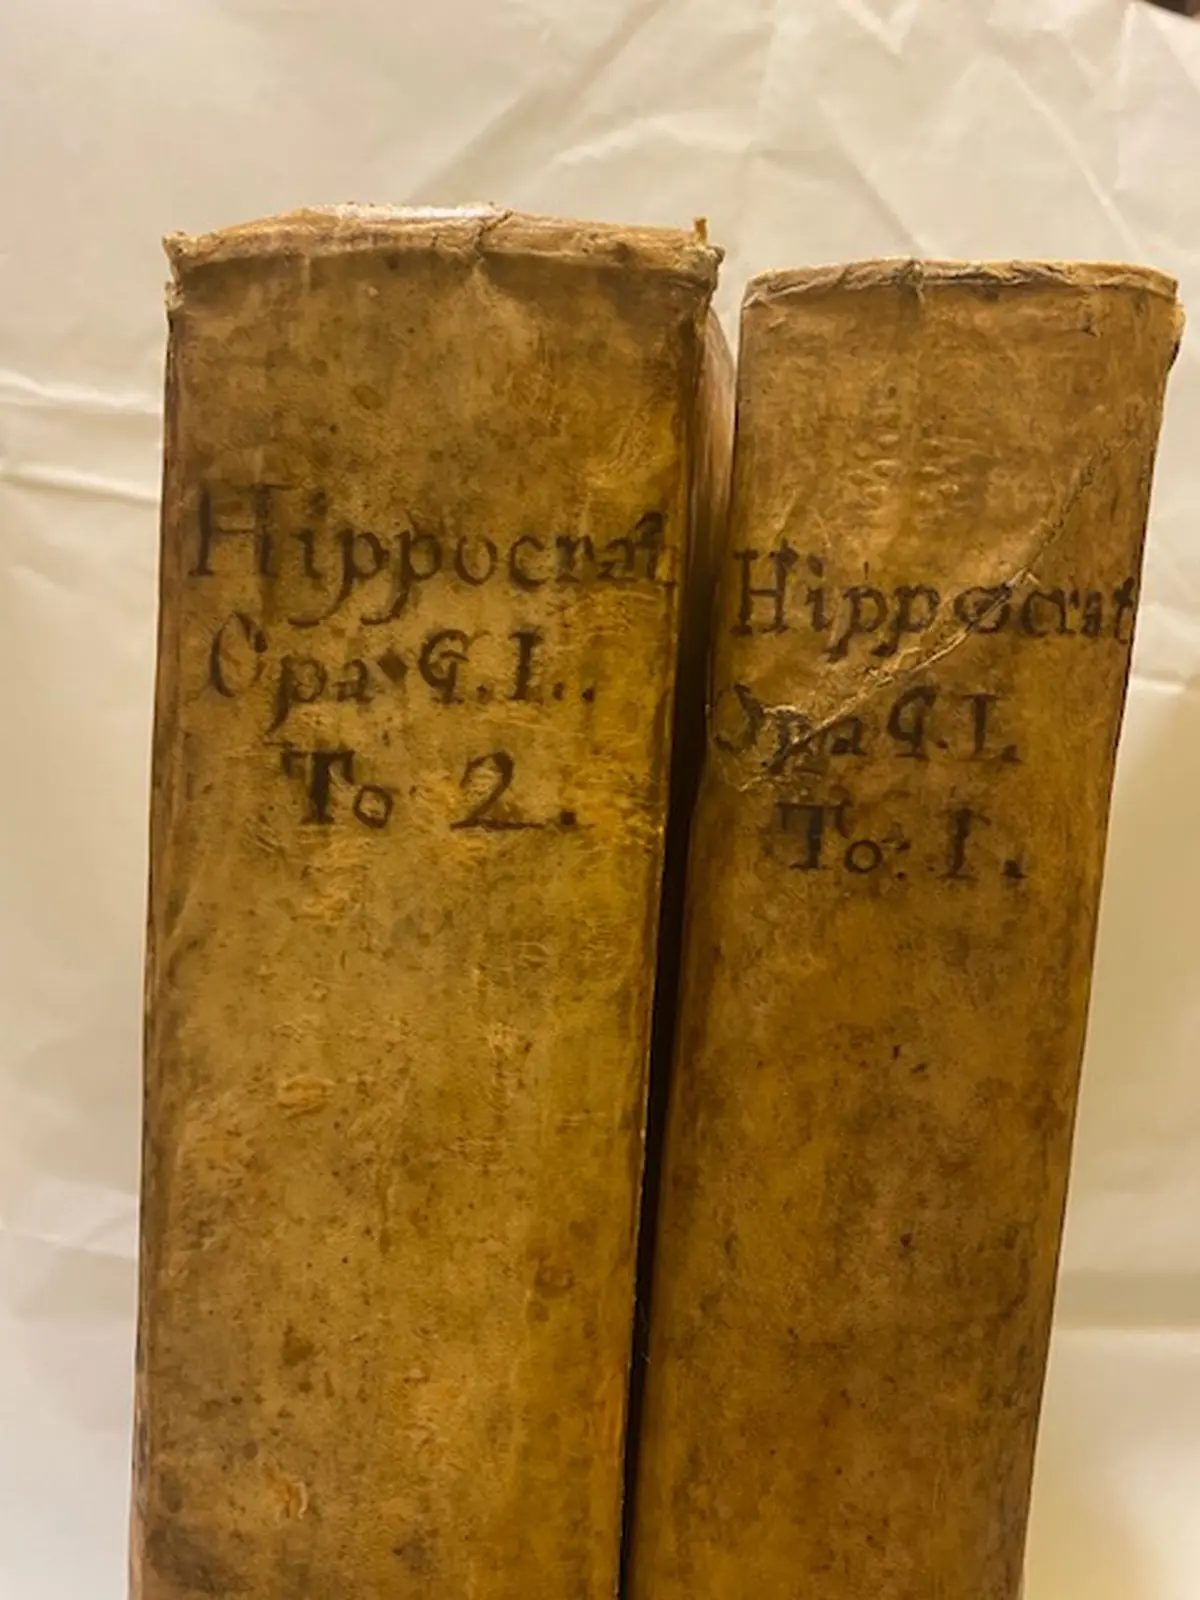 Hippocrat
Opa G.L.
To 2.
Hippocrat
Opa G.L.
To. 1.